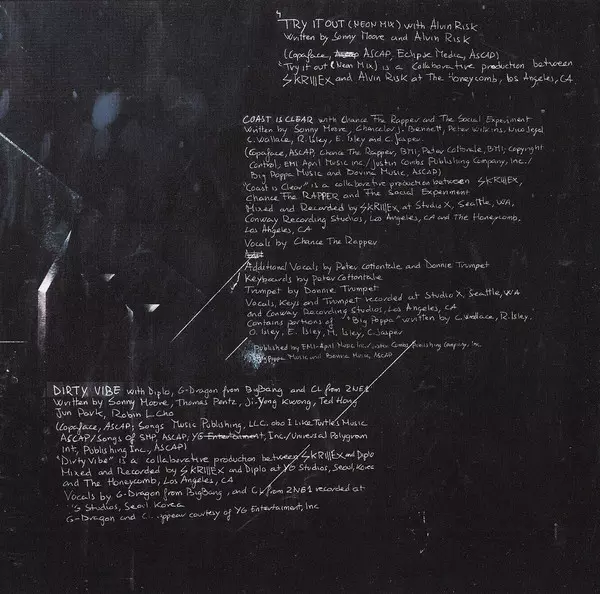 TRY IT OUT (NEON MIX) with Alvin Risk
Written by Sonny Moore and Alvin Risk
(Copaface, ASCAP, Eclipse Media, ASCAP)
"Try it out (Neon Mix) is a collaborative production between
SKRIllEX and Alvin Risk at The Honeycomb, Los Angeles, CA
COAST IS CLEAR with Chance The Rapper and The Social Experiment
Written by Sonny Moore, Chancelor J. Bennett, Peter Wilkins, Nico Segal
C. Wallace, R. Isley, E. Isley and C. Jasper.
(Copaface, ASCAP, Chance The Rapper, BMI; Peter Cottontale, BMI; Copyright
Control, EMI April Music inc./Justin Combs Publishing Company, Inc./
Big Poppa Music and Bovina Music, ASCAP)
"Coast is Clear" is a collaborative production between SKRIllEX,
Chance The RAPPER and The Social Experiment
Mixed and Recorded by SKRIllEX at Studio X, Seattle, WA,
Conway Recording Studios, Los Angeles, CA and The Honeycomb,
Los Angeles, CA
Vocals by Chance The Rapper
Additional Vocals by Peter Cottontale and Donnie Trumpet
Keyboards by Peter Cottontale
Trumpet by Donnie Trumpet
Vocals, Keys and Trumpet recorded at Studio X, Seattle, WA
and Conway Recording Studios, Los Angeles, CA
Contains portions of "Big Poppa" written by C. Wallace, R. Isley.
O. Isley, E. Isley, M. Isley, C. Jasper
Published by EMI-April Music Inc./Justin Combs Publishing Company, Inc.
Big Poppa Music and Bovina Music, ASCAP
DIRTY VIBE with Diplo, G-Dragon from BigBang and CL from 2NE1
Written by Sonny Moore, Thomas Pentz, Ji-Yong Kwong, Ted Hong
Jun Park, Robin L. Cho
(Copaface, ASCAP; Songs Music Publishing, LLC. obo I Like Turtle's Music
ASCAP/Songs of SMP, ASCAP; YG Entertainment, Inc/Universal Polygram
Int, Publishing Inc., ASCAP)
"Dirty Vibe" is a collaborative production between SKRIllEX and Diplo
Mixed and Recorded by SKRIllEX and Diplo at YG Studios, Seoul, Korea
and The Honeycomb, Los Angeles, CA
Vocals by G-Dragon from BigBang, and CL from 2NE1 recorded at
Studios, Seoul Korea
G-Dragon and appear courtesy of YG Entertaiment, Inc